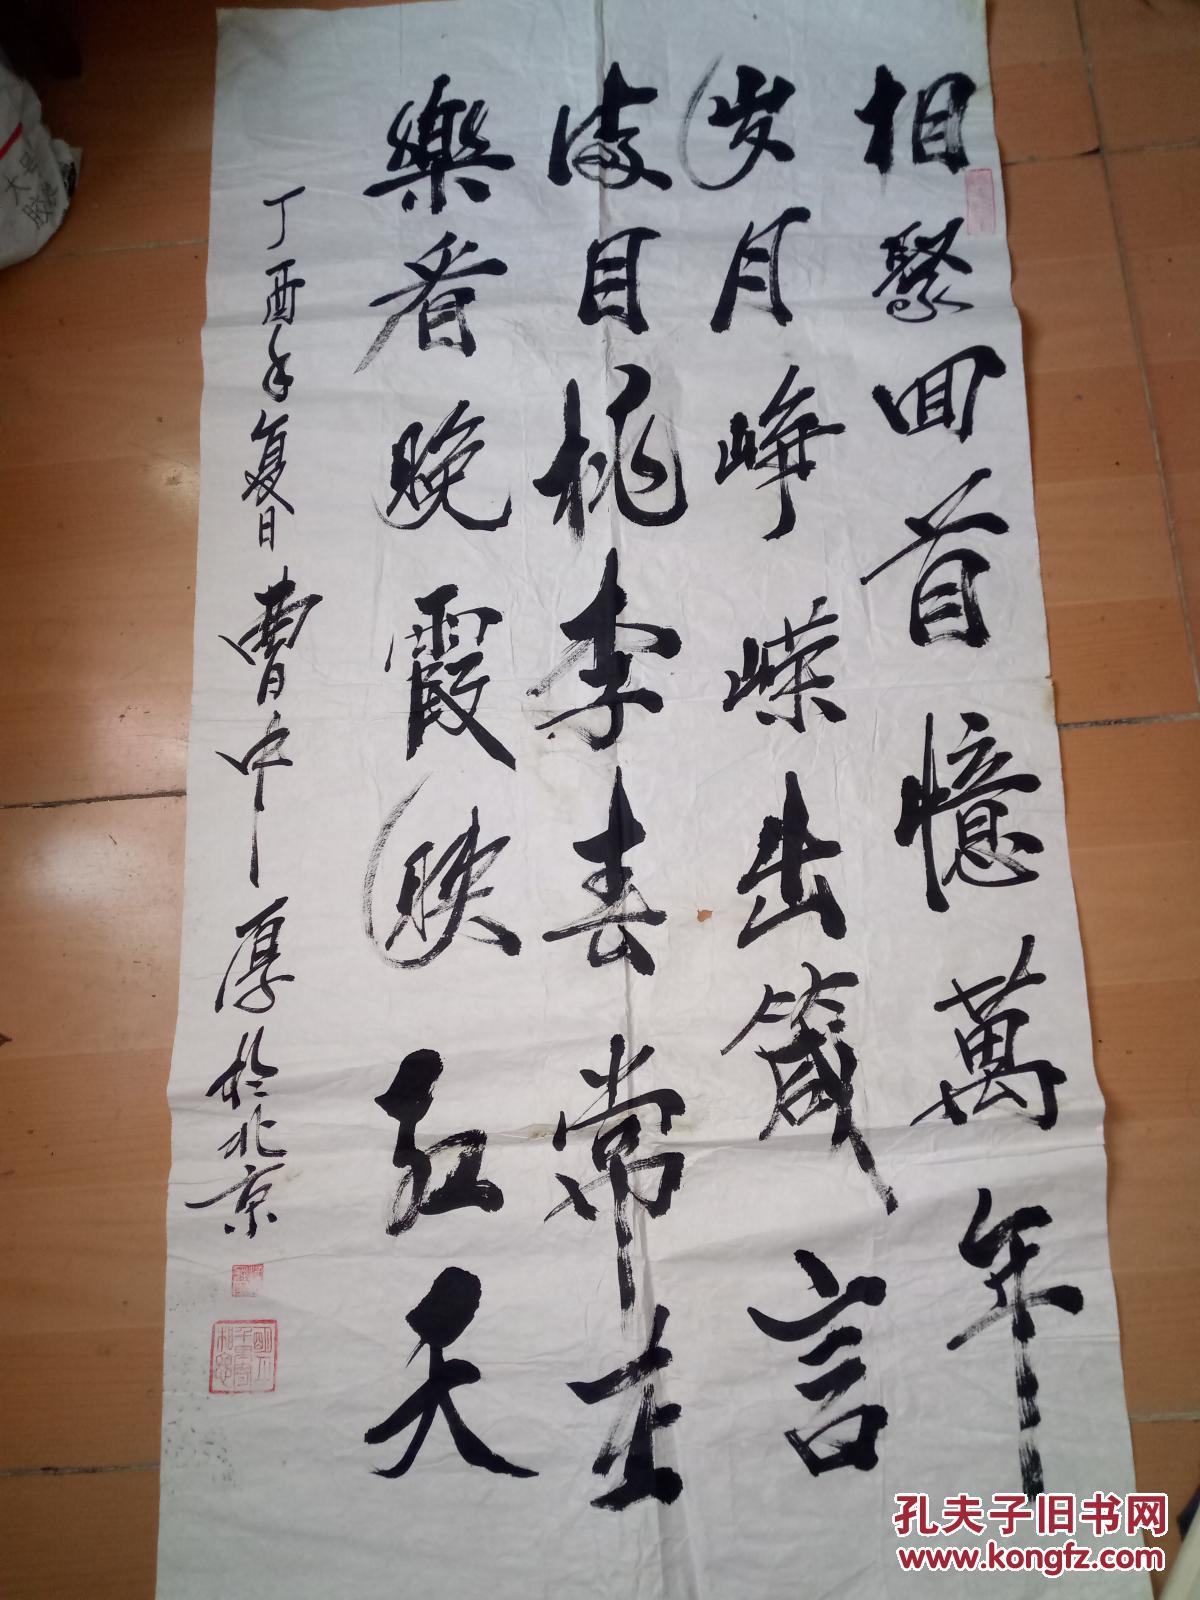 相聚回首憶萬年
岁月峥嵘出箴言
满目桃李春常在
樂看晚霞映红天
丁酉年夏日曹中厚於北京
明月千里寄相思
孔夫子旧书网
www.kongfz.com